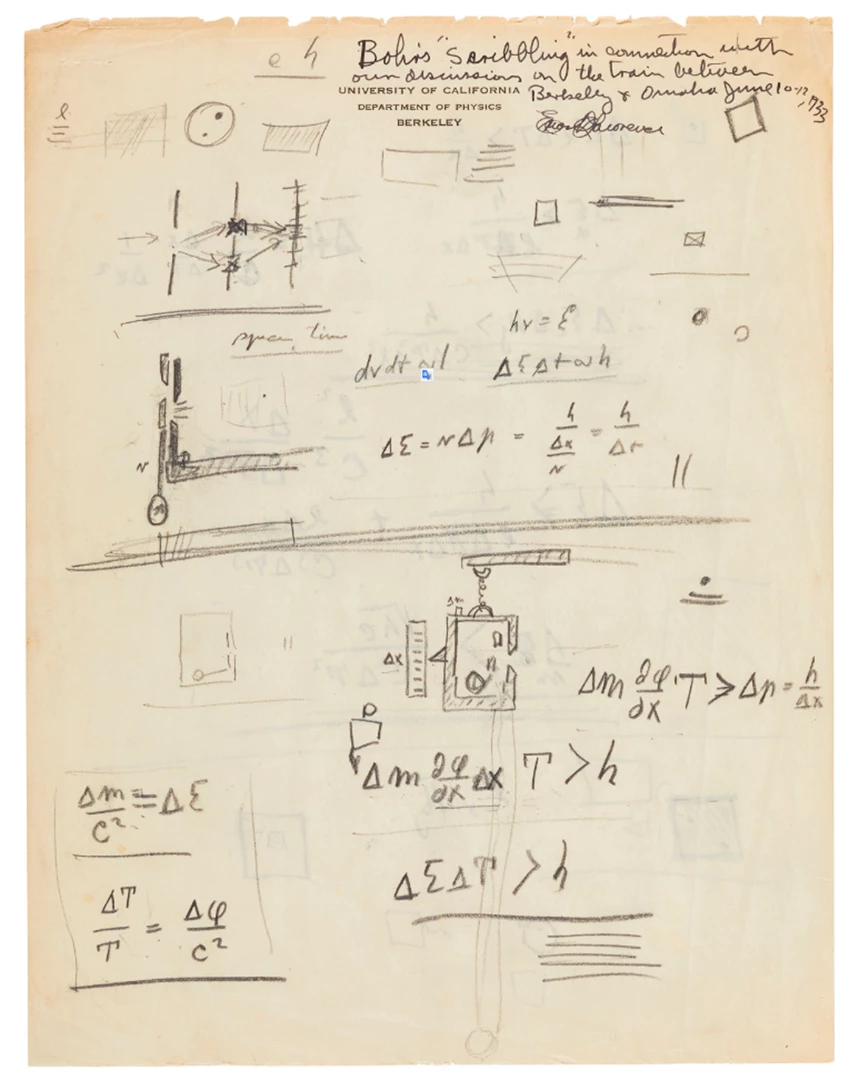 e h
Bohr's "Scribbling" in connection with
our discussions on the train between
Berkeley & Omaha June 10-12, 1933
UNIVERSITY OF CALIFORNIA
DEPARTMENT OF PHYSICS
BERKELEY
space, time
hν = ε
dνdt ∾ 1
ΔεΔt ∾ h
Δε = vΔp = h/(Δx/v) = h/Δt
v
Δm
Δx
Δm ∂φ/∂x T > Δp = h/Δx
Δm ∂φ/∂x Δx T > h
Δm/c² = Δε
ΔεΔT > h
ΔT/T = Δφ/c²